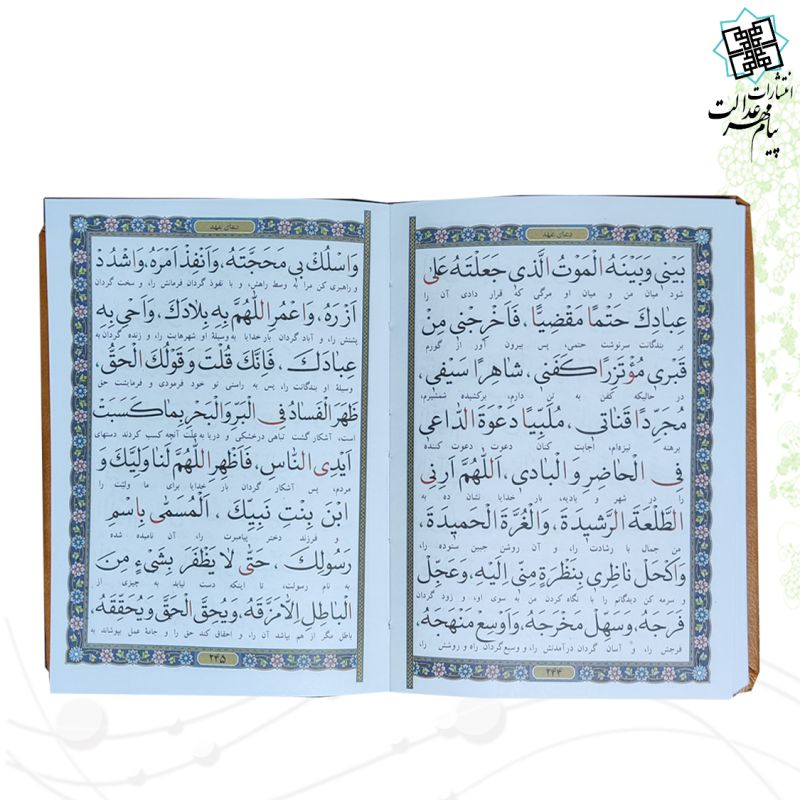 انتشارات
پیام مهر عدالت
دعای عهد
بَيْنِي وَبَيْنَهُ الْمَوْتُ الَّذِي جَعَلْتَهُ عَلَى
شود میان من و میان او مرگی که قرار دادی آن را
عِبَادِكَ حَتْمًا مَقْضِيًّا، فَأَخْرِجْنِي مِنْ
بر بندگانت سرنوشت حتمی، پس بیرون آور از گورم
قَبْرِي مُؤْتَزِرًا كَفَنِي، شَاهِرًا سَيْفِي،
در حالیکه کفن به تن دارم، برکشیده شمشیرم،
مُجَرِّدًا قَنَاتِي، مُلَبِّيًا دَعْوَةَ الدَّاعِي
برهنه نیزه‌ام، اجابت کنان دعوت دعوت کننده
فِي الْحَاضِرِ وَالْبَادِي، اَللّٰهُمَّ اَرِنِي
را در شهر و بادیه، بار خدایا نشان ده به
الطَّلْعَةَ الرَّشِيدَةَ، وَالْغُرَّةَ الْحَمِيدَةَ،
من جمال با رشادت را، و آن روشن جبین ستوده را،
وَاكْحُلْ نَاظِرِي بِنَظْرَةٍ مِنِّي إِلَيْهِ، وَعَجِّلْ
و سرمه کن دیدگانم را با نگاه کردن من به سوی او، و زود گردان
فَرَجَهُ، وَسَهِّلْ مَخْرَجَهُ، وَأَوْسِعْ مَنْهَجَهُ،
فرجش را، و آسان گردان درآمدنش را، و وسیع گردان راه و روشش را،
۲۴۴
دعای عهد
وَاسْلُكْ بِي مَحَجَّتَهُ، وَأَنْفِذْ أَمْرَهُ، وَاشْدُدْ
و راهبری کن مرا به وسط راهش، و با نفوذ گردان فرمانش را، و سخت گردان
أَزْرَهُ، وَاعْمُرِ اللّٰهُمَّ بِهِ بِلَادَكَ، وَأَحْيِ بِهِ
پشتش را، و آباد گردان بار خدایا به وسیلهٔ او شهرهایت را، و زنده گردان به
عِبَادَكَ، فَإِنَّكَ قُلْتَ وَقَوْلُكَ الْحَقُّ،
وسیلهٔ او بندگانت را، پس به راستی تو خود فرمودی و فرمایشت حق
ظَهَرَ الْفَسَادُ فِي الْبَرِّ وَالْبَحْرِ بِمَا كَسَبَتْ
است، آشکار گشت تباهی درخشکی و دریا به علت آنچه کسب کردند دستهای
أَيْدِي النَّاسِ، فَأَظْهِرِ اللّٰهُمَّ لَنَا وَلِيَّكَ وَ
مردم، پس آشکار گردان بار خدایا برای ما ولیّت را
ابْنَ بِنْتِ نَبِيِّكَ، اَلْمُسَمَّى بِاسْمِ
و فرزند دختر پیامبرت را، آن نامیده شده
رَسُولِكَ، حَتَّى لَا يَظْفَرَ بِشَيْءٍ مِنَ
به نام رسولت، تا اینکه دست نیابد به چیزی از
الْبَاطِلِ إِلَّا مَزَّقَهُ، وَيُحِقَّ الْحَقَّ وَيُحَقِّقَهُ،
باطل مگر از هم بپاشد آن را، و احقاق کند حق را و جامهٔ عمل بپوشاند به
۲۴۵